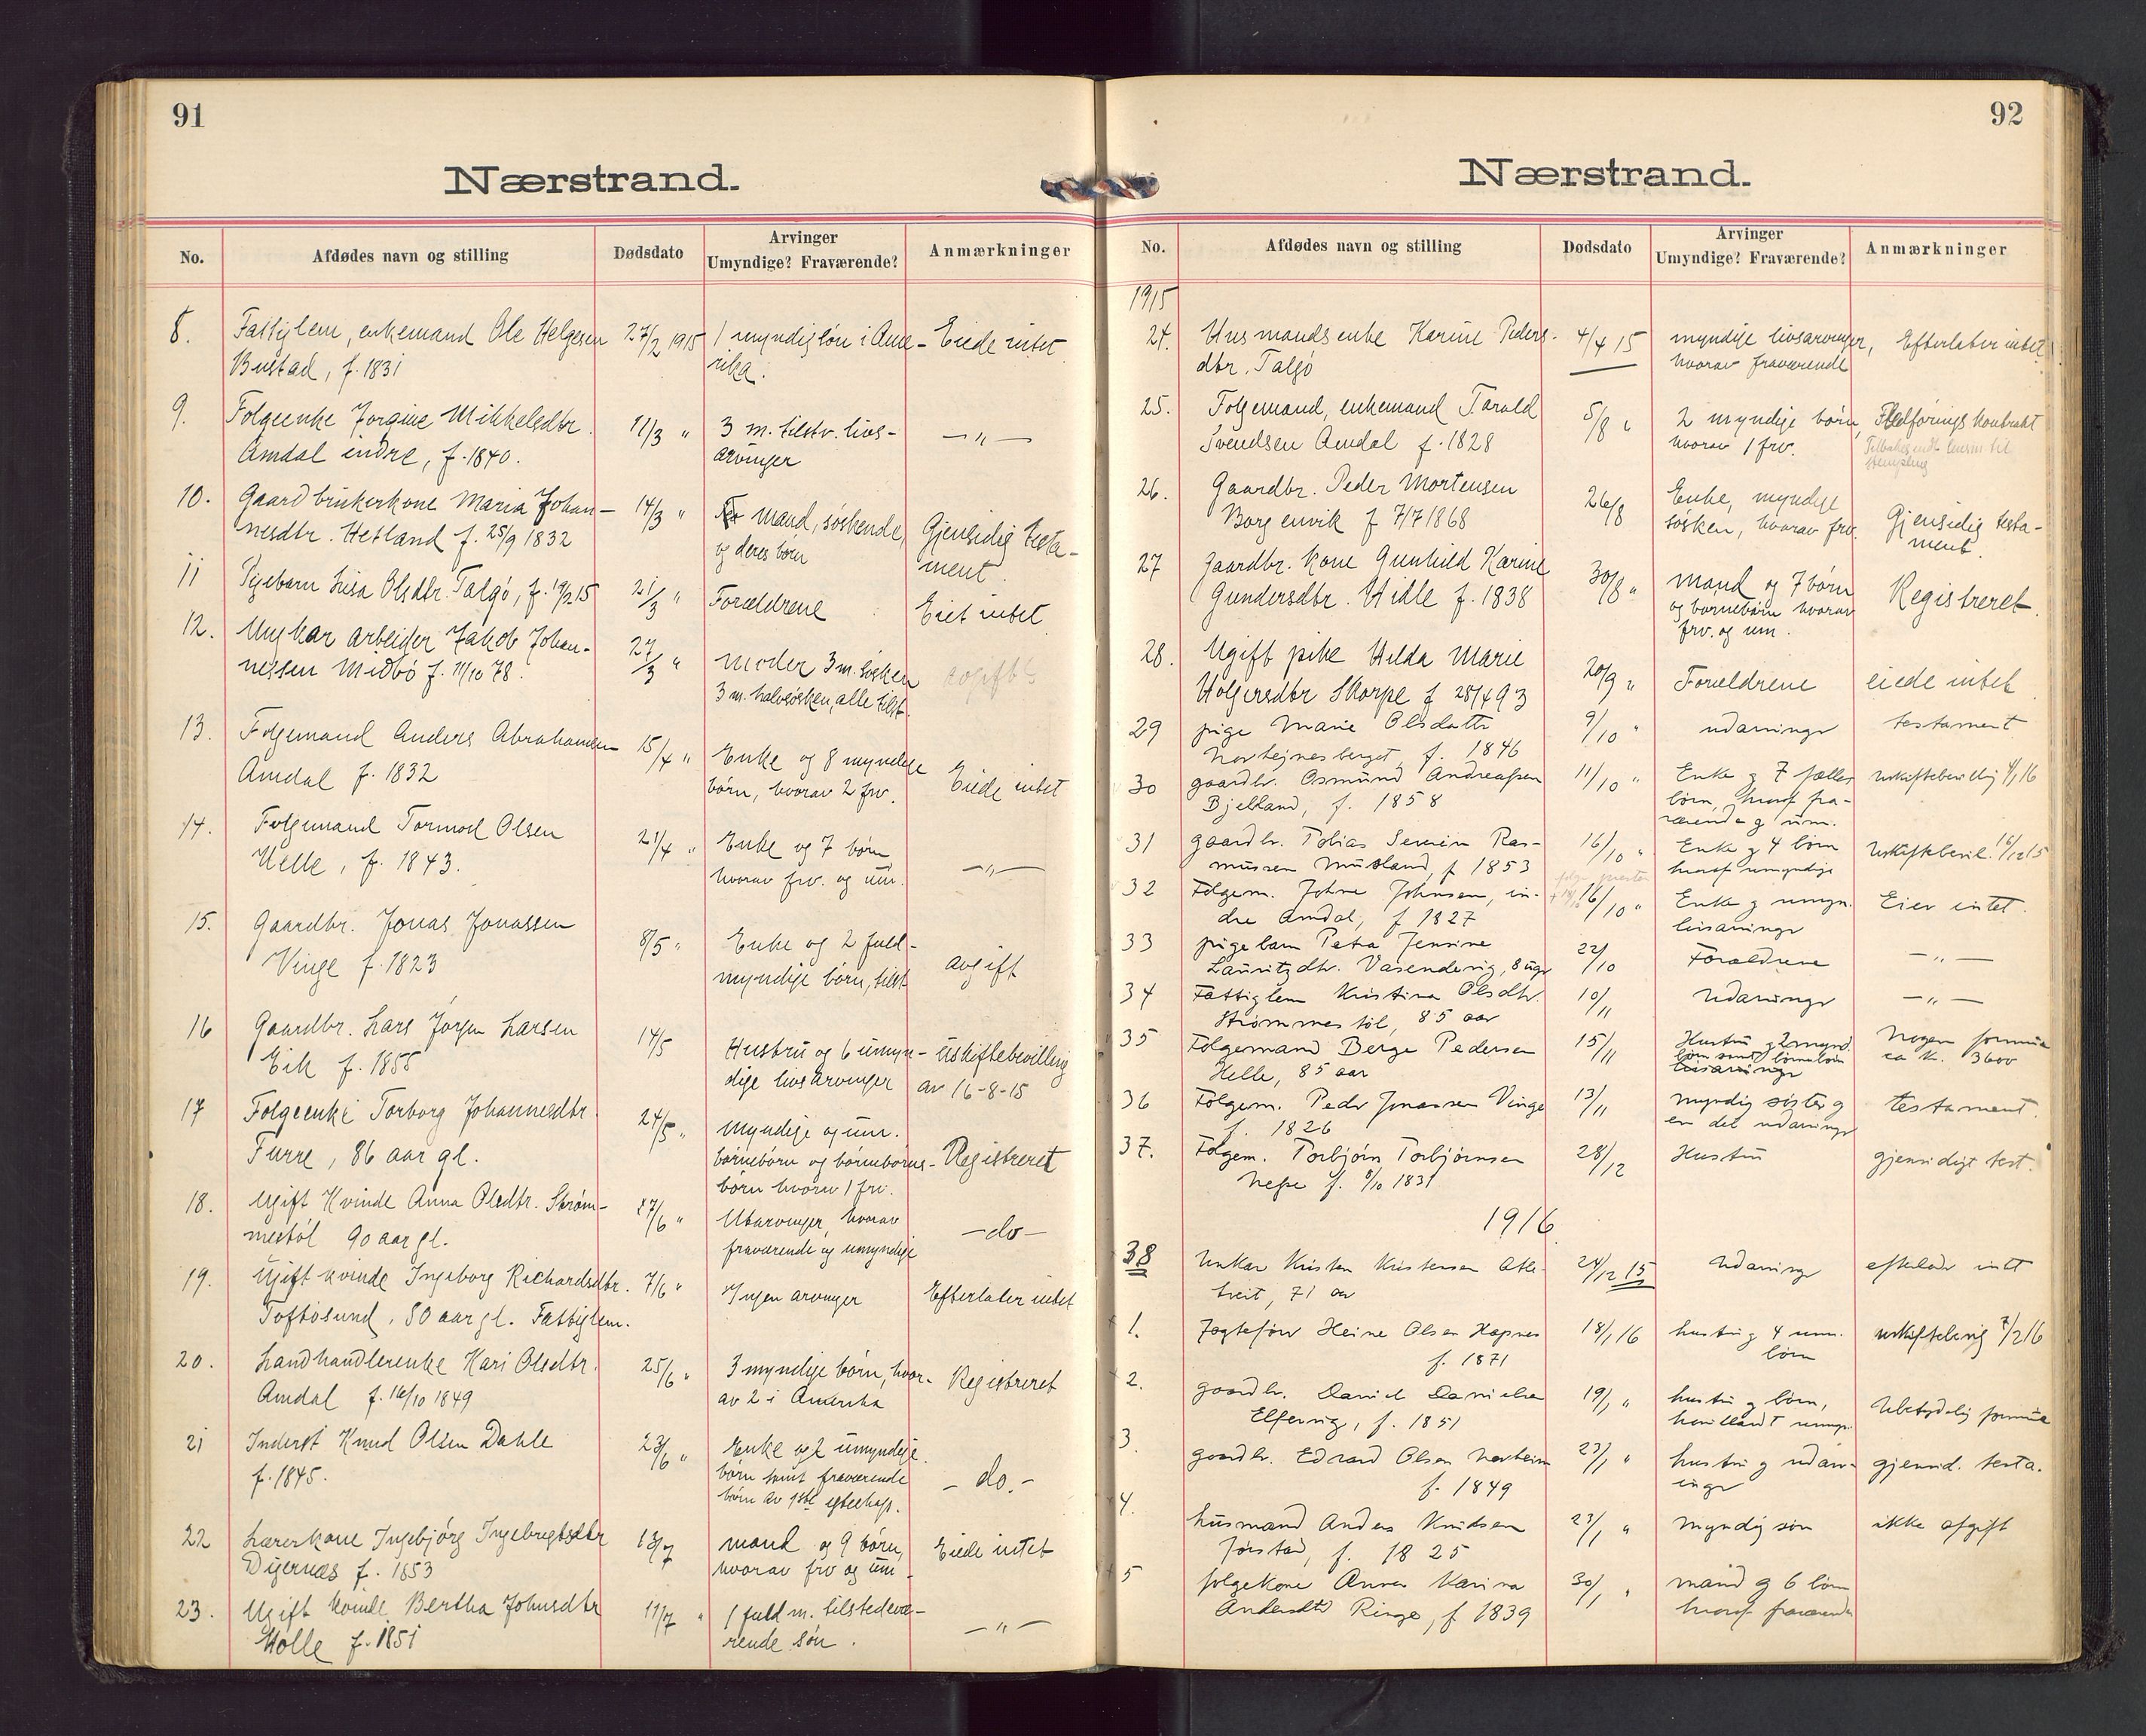 91
Nærstrand.
No. Afdødes navn og stilling Dødsdato Arvinger Umyndige? Fraværende? Anmærkninger
8. Fattiglem, enkemand Ole Helgesen 27/2 1915 1 myndig søn i Ame- Eiede intet
Bustad, f. 1831 rika.
9. Folgeenke Jorgine Mikkelsdtr. 11/3 " 3 m. tilstv. livs- —"—
Amdal indre, f. 1840. arvinger
10. Gaardbrukerkone Maria Johan- 14/3 " mand, søskende, Gjensidig testa-
nesdtr. Hetland f. 25/9 1832 og deres børn ment.
11 Pigebarn Lisa Olsdtr. Talgø, f. 19/2 15 21/3 " Forældrene Eiet intet
12. Ungkar arbeider Jakob Johan- 27/3 " moder 3 m. søsken
nessen Midbø f. 11/10 78. 3 m. halvsøsken, alle tilst.
13. Folgemand Anders Abrahamsen 15/4 " Enke og 8 myndige Eiede intet
Amdal f. 1832 børn, hvorav 2 frv.
14. Folgemand Tormod Olsen 21/4 " Enke og 7 børn —"—
Helle, f. 1843. hvorav frv. og um.
15. Gaardbr. Jonas Jonassen 8/5 " Enke og 2 fuld- avgift
Vinge f. 1823 myndige børn, tilst
16 Gaardbr. Lars Jørgen Larsen 14/5 Hustru og 6 umyn- Uskiftebevilling
Eik f. 1855 dige livsarvinger av 16-8-15
17 Folgeenke Torborg Johannesdtr. 24/5 " Myndige og um. Registreret
Furre, 86 aar gl. børnebørn og børnebørns-
børn hvorav 1 frv.
18. Ugift Kvinde Anna Olsdtr. Strøm- 27/6 " Utarvinger, hvorav —do—
mestøl 90 aar gl. fraværende og umyndige
19. Ugift kvinde Ingeborg Richardsdtr. 7/6 " Ingen arvinger Efterlater intet
Toftøsund, 80 aar gl. Fattiglem.
20. Landhandlerenke Kari Olsdtr. 25/6 " 3 myndige børn, hvor- Registreret
Amdal f. 16/10 1849 av 2 i Amerika
21 Inderst Knud Olsen Dahle 23/6 " Enke og 2 umyndige —do.—
f. 1845. børn samt fraværende
børn av 1ste egteskap.
22 Lærerkone Ingebjørg Ingebregtsdtr 13/7 mand og 9 børn, Eiede intet
Digernæs f. 1853 hvorav frv og um.
23. Ugift kvinde Bertha Johnsdtr 11/7 " 1 fuld m. tilstedevæ- —"—
Holle f. 1851 rende søn.
92
Nærstrand.
No. Afdødes navn og stilling Dødsdato Arvinger Umyndige? Fraværende? Anmærkninger
1915
24. Husmandsenke Karine Peders- 4/4 15 myndige livsarvinger, Efterlater intet
dtr. Talgø hvorav fraværende
25. Folgemand, enkemand Torald 5/8 " 2 myndige børn, Fledførings kontrakt
Svendsen Amdal f. 1828 hvorav 1 frv. Tilbakesendt lensm. til
stempling
26. Gaardbr. Peder Mortensen 26/8 Enke, myndige Gjensidig testa-
Borgenvik f 7/7 1868 søsken, hvorav frv. ment.
27 Gaardbr. kone Gunhild Karine 30/8 " mand og 7 børn Registreret.
Gundersdtr. Hidle f. 1838 og børnebørn hvorav
frv. og um.
28. Ugift pike Hilda Marie 20/9 " Forældrene eiede intet
Holgersdtr Skorpe f 28/4 93
29 pige Marie Olsdatter 9/10 " udarvinger testament
f. 1846
30 gaardbr. Osmund Andreassen 11/10 " Enke og 7 fælles uskiftebevillig 4/1 16
Bjelland, f. 1858 børn, hvoraf fra-
værende og um.
31 gaardbr. Tobias Severin Ras- 16/10 " Enke og 4 børn Uskiftebevil. 16/12 15
mussen Musland, f 1853 hvoraf umyndige
32 Folgem. Johne Johnsen, in- 16/10 " Enke og umyn. Eier intet.
dre Amdal, f 1827 livsarvinger
33 pigebarn Petra Jensine 22/10 Forældrene —"—
Lauritzdtr. Vasendevig, 8 uger
34 Fattiglem Kristina Olsdtr. 10/11 Udarvinger —"—
Strømmestøl, 85 aar
35 Folgemand Børge Pedersen 15/11 Hustru og 2 mynd. Nogen formue
Helle, 85 aar børn samt børnebørn ca kr. 3600
livsarvinger
36 Folgem. Peder Jonassen Vinge 13/11 myndig søster og testament.
f. 1826 en del udarvinger
37. Folgem. Torbjørn Torbjørnsen 28/12 Hustru gjensidigt test.
f. 8/10 1831
1916
38 Unkar Kristen Kristensen Atle- 24/12 15 Udarvinger efterlader intet
treit, 71 aar
1. Jagtefører Heine Olsen Hapnes 18/1 16 hustru og 4 um. uskiftebevig 7/2 16
f. 1871 børn
2. gaardbr. Daniel Danielsen 19/1 " hustru og børn, Ubetydelig formue
Elfervig, f. 1851 hvoriblandt umyn.
3. gaardbr. Edvard Olsen Norheim 23/1 " hustru og udarv- gjensid. testa.
f. 1849 inger
4. husmand Anders Knudsen 23/1 " myndig søn ikke afgift
Jørstad, f. 1825
5 folgekone Anna Karina 30/1 " mand og 6 børn
Andersdtr Ringe, f 1839 hvoraf fraværende